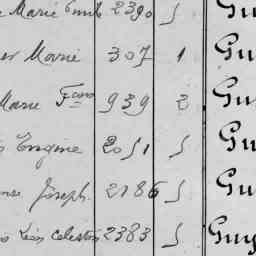 Marie Emile 2390 5 Gu
Marie 307 1 Gu
Marie Fcoise 939 3 Gu
Eugène 2051 5 Gu
Joseph 2186 5 Gu
Léon Celestin 2383 5 Guy